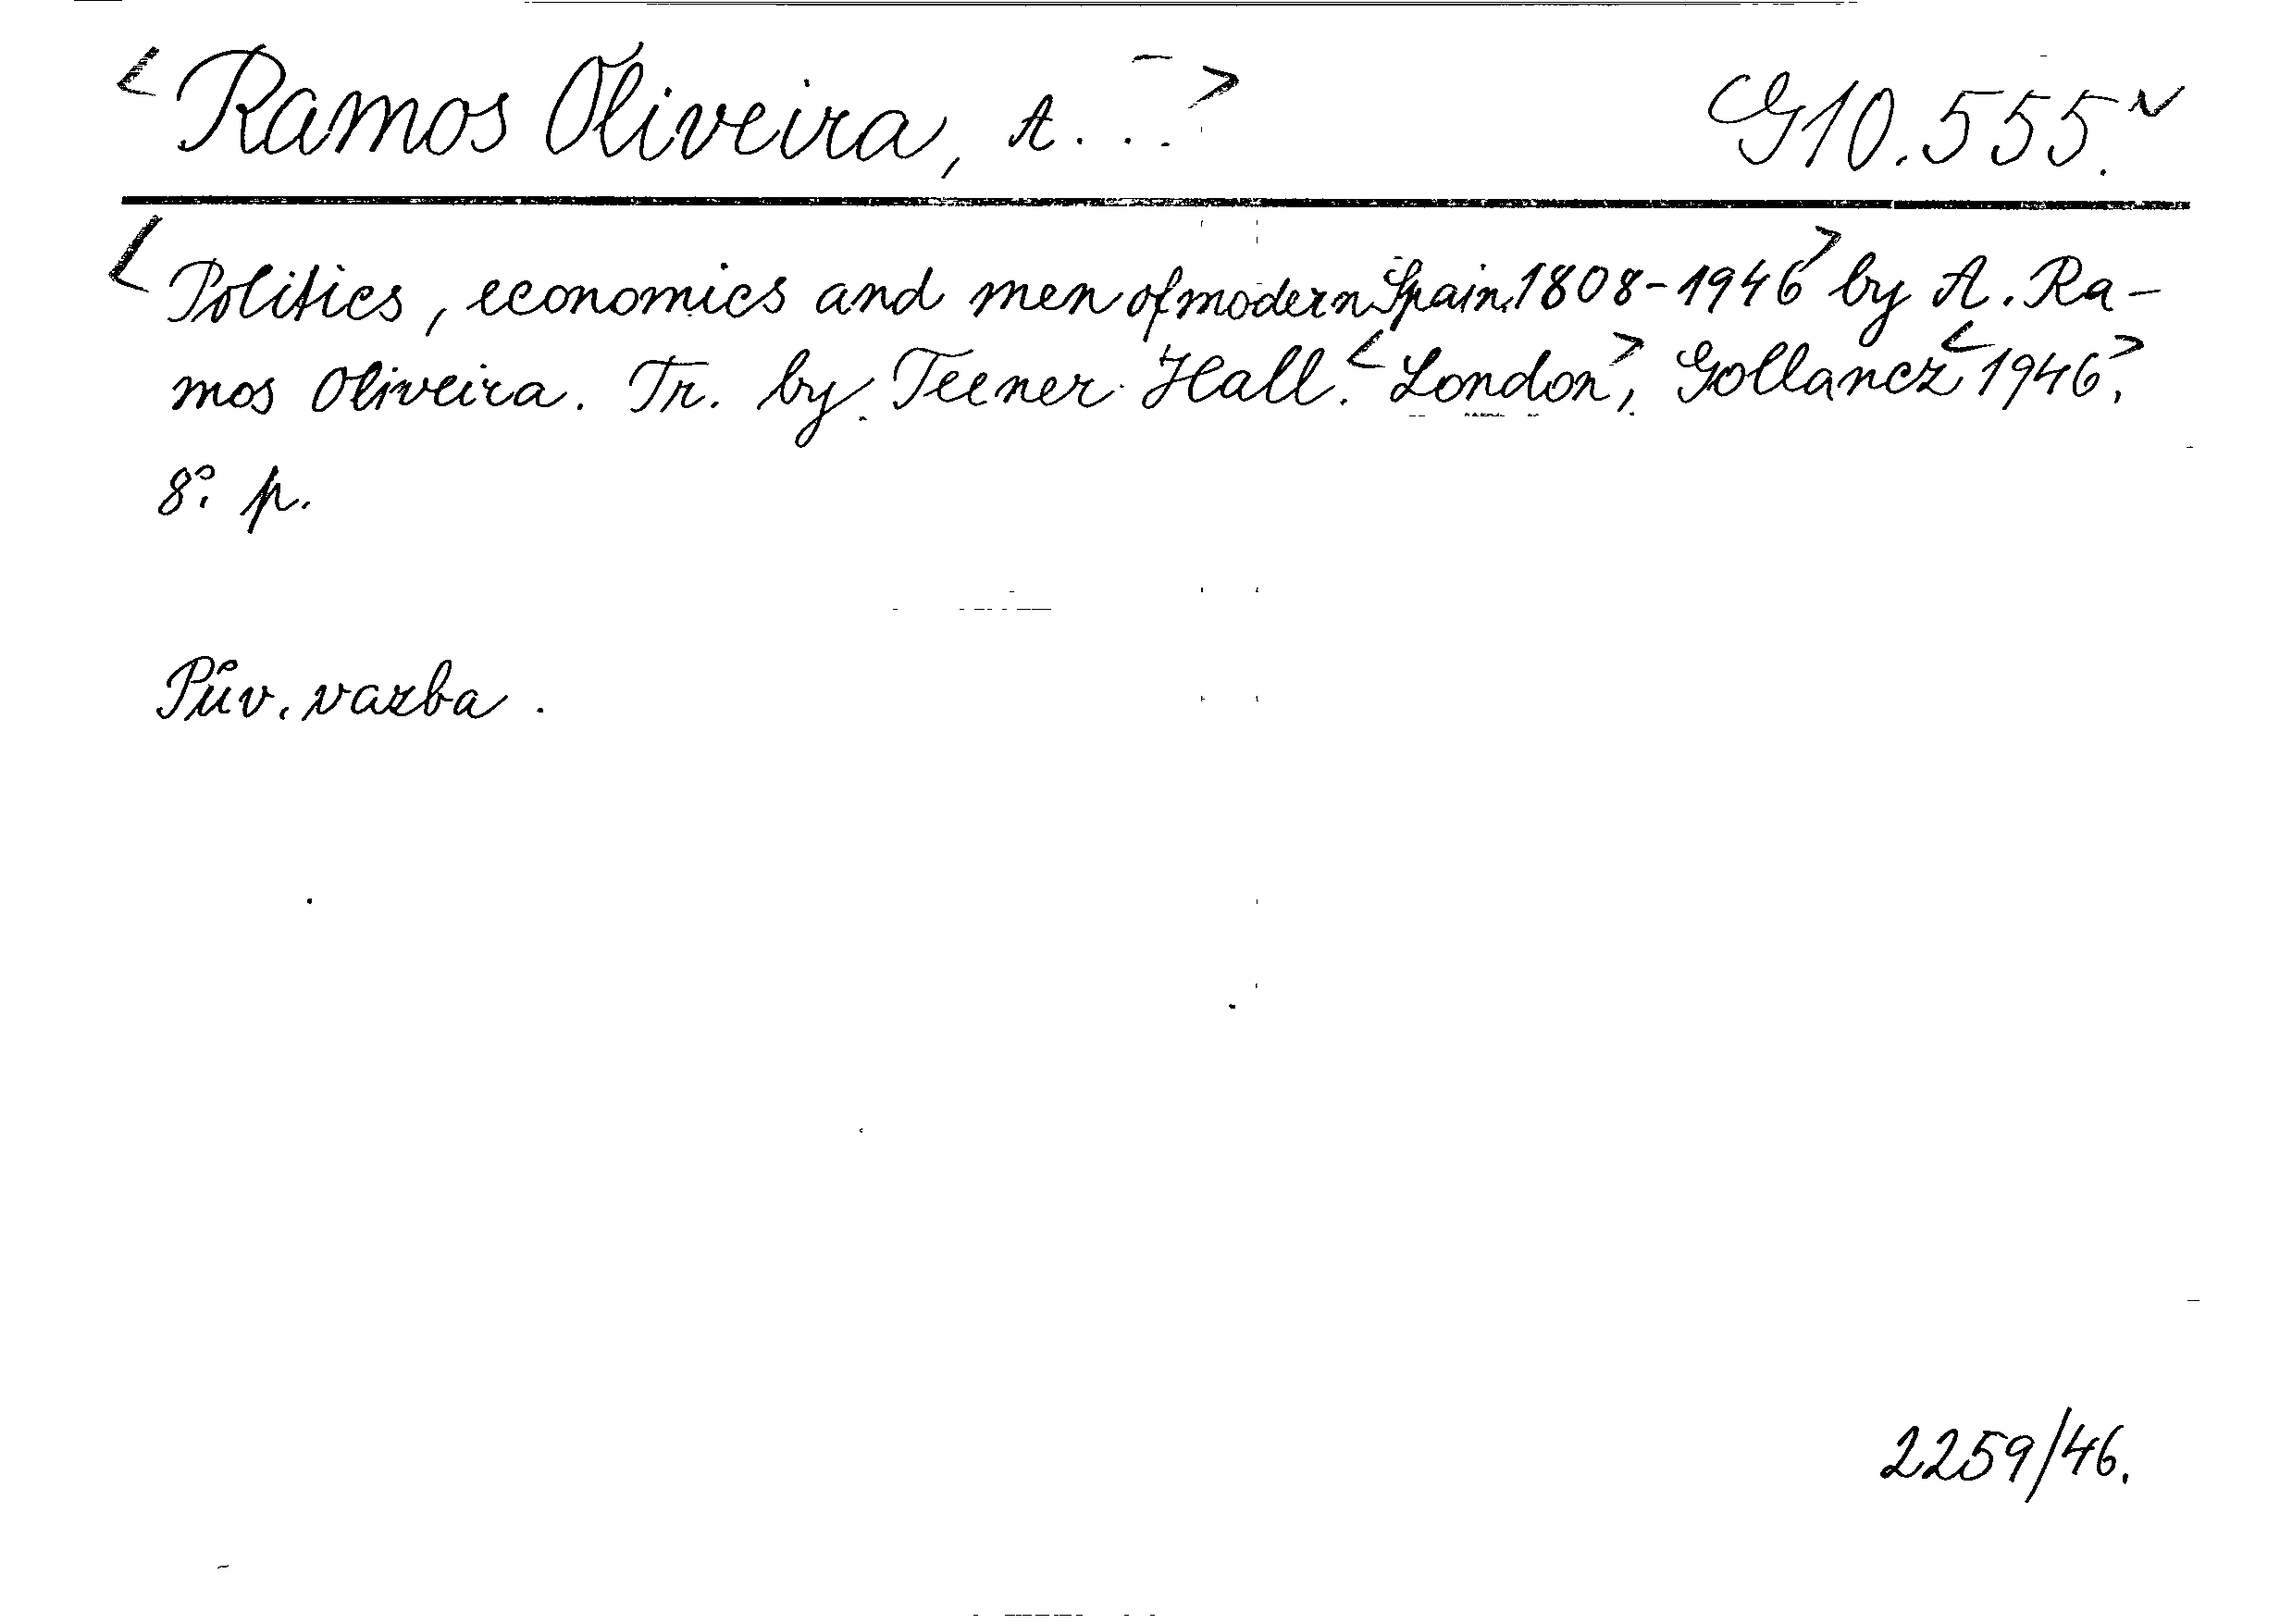 <Ramos Oliveira, A...> G10.555.N
<Politics, economics and men of modern Spain 1808-1946> by A. Ra-
mos Oliveira. Tr. by Teener Hall. <London>, Gollancz <1946>.
8°. p.
Pův. vazba.
2259/46.